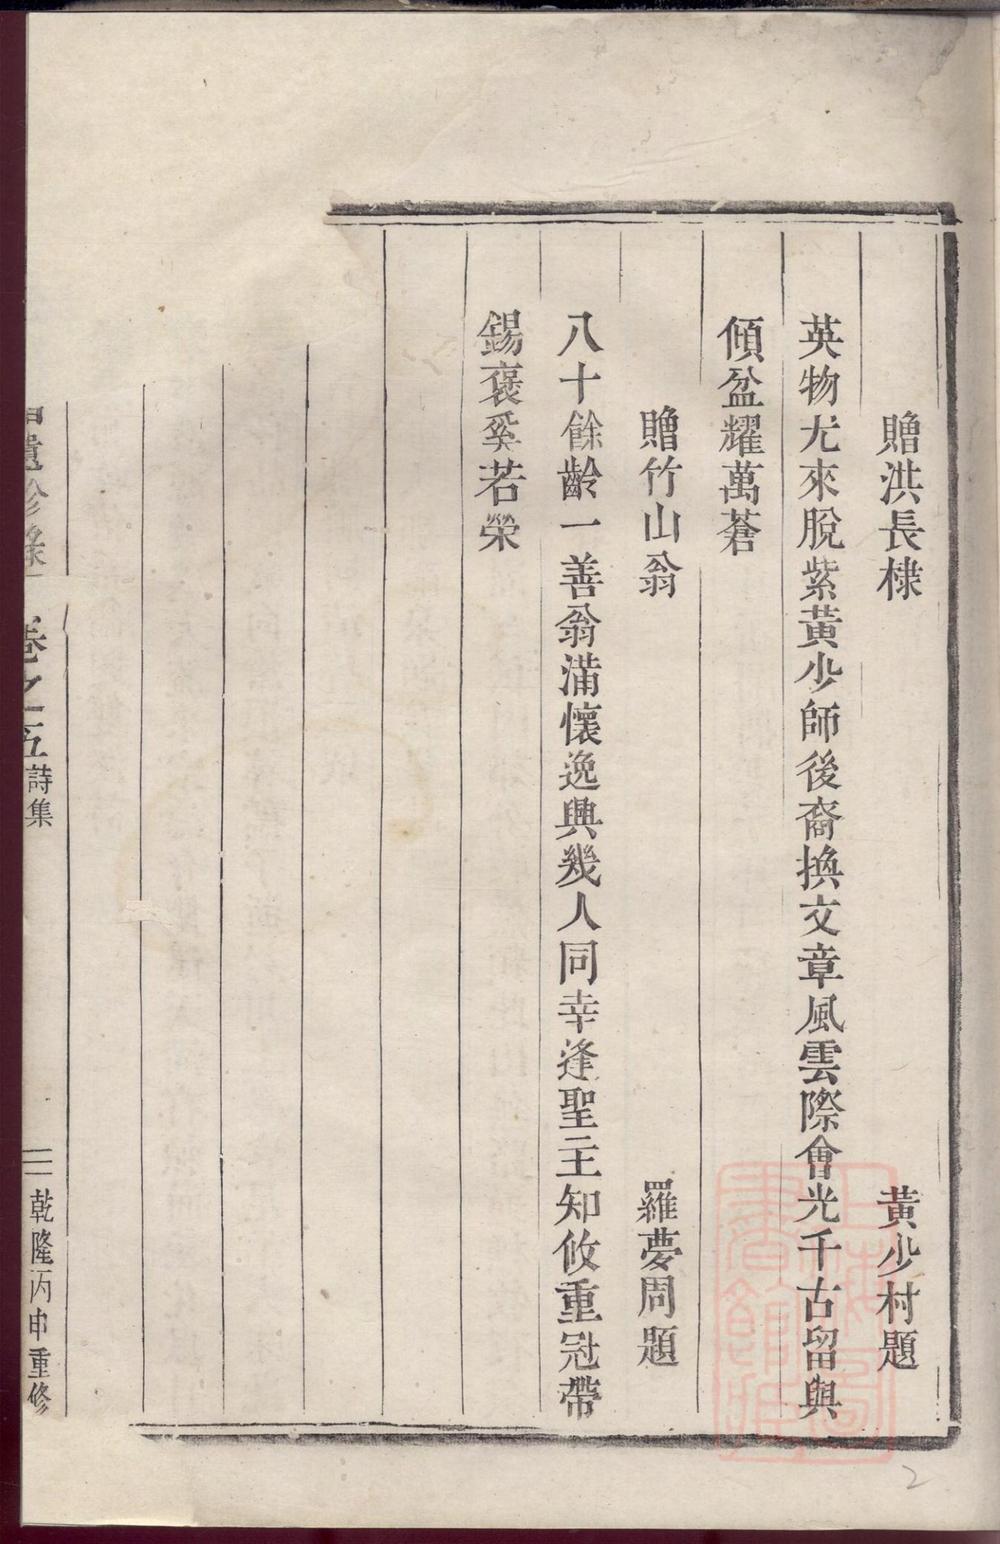 贈洪長棣 黃少村題
英物尤來脫紫黃少師後裔換文章風雲際會光千古留與
傾盆耀萬蒼
贈竹山翁 羅夢周題
八十餘齡一善翁滿懷逸興幾人同幸逢聖主知攸重冠帶
錫褒奚若榮
遺珍 卷之五 詩集 三 乾隆丙申重修
上海圖書館藏
2